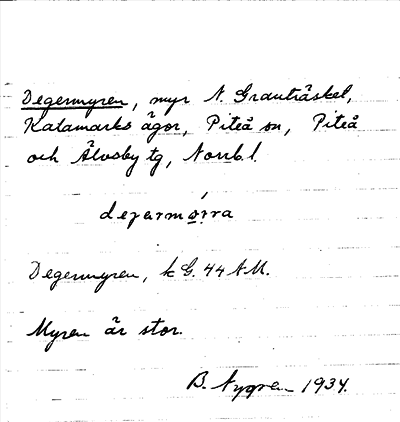 Degermyren, myr N. Granträskel,
Katamarks ägor, Piteå sn, Piteå
och Älvsby tg, Norrb. l.
Degermyren, k G. 44 A.M.
Myren är stor.
B. Nygren 1934.